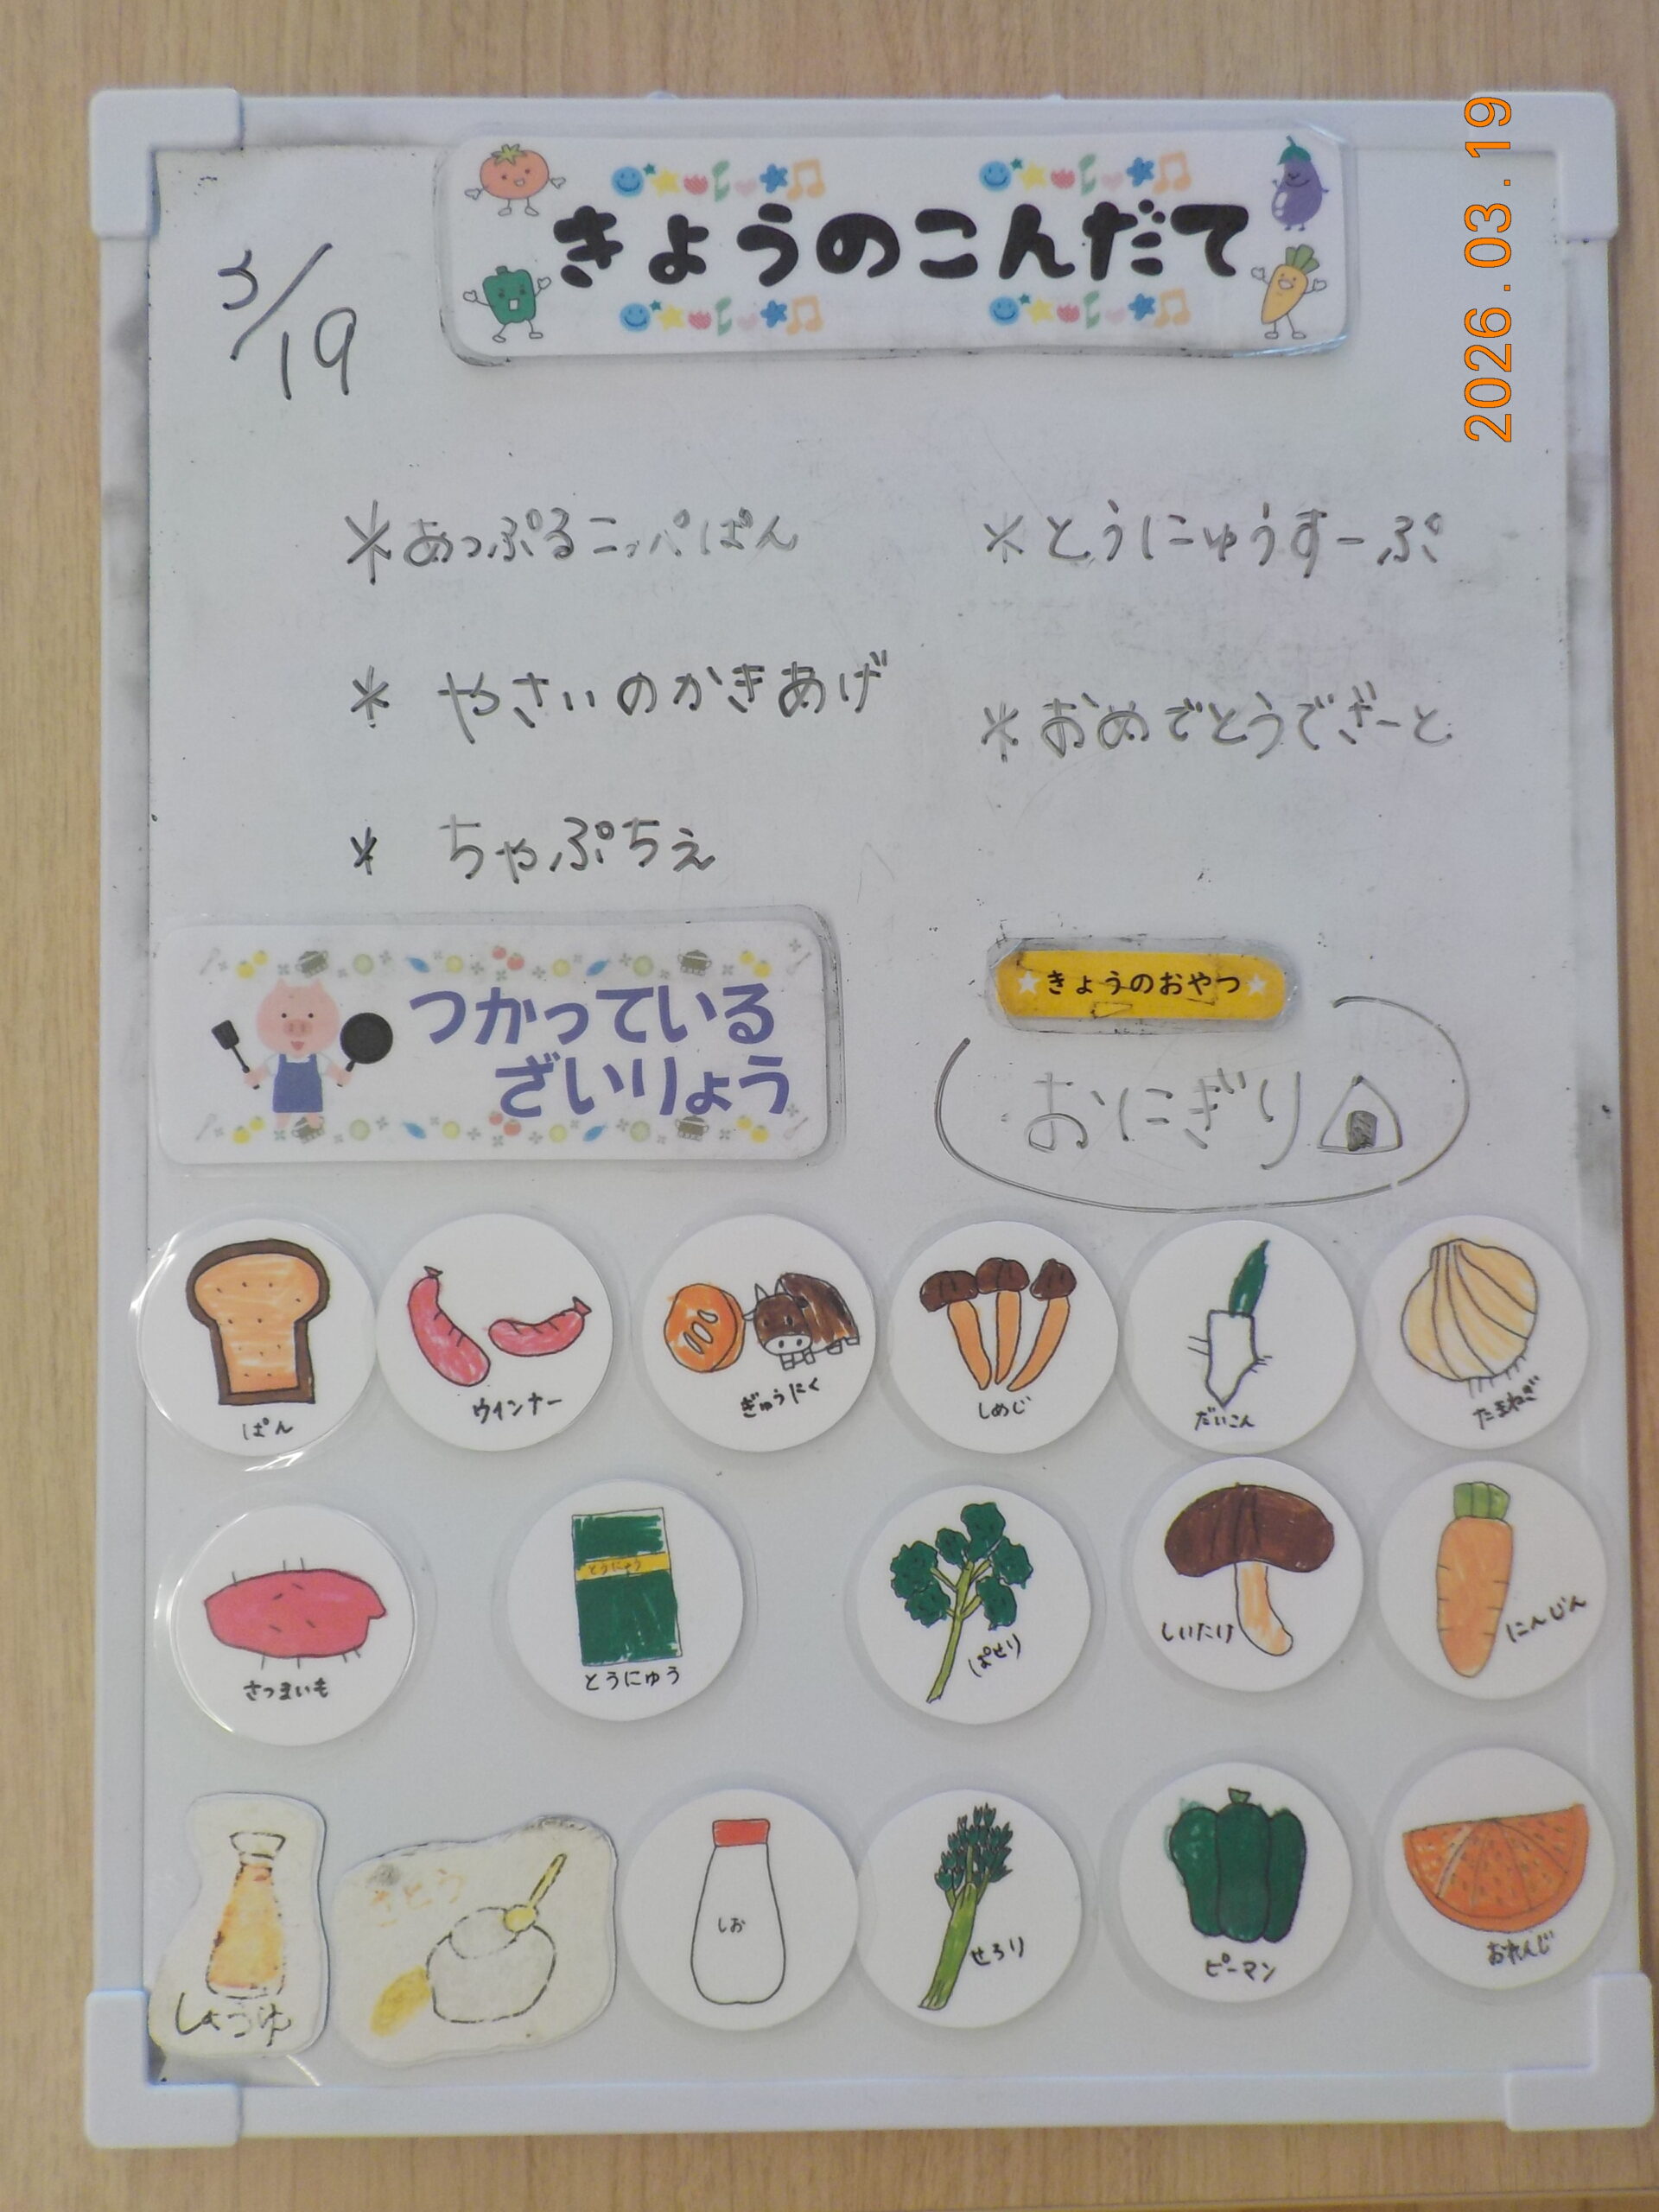 きょうのこんだて
3/19
2026.03.19
*あっぷるこっぺぱん
*とうにゅうすーぷ
* やさいのかきあげ
*おめでとうでざーと
* ちゃぷちぇ
つかっている
ざいりょう
きょうのおやつ
おにぎり
ぱん
ウインナー
ぎゅうにく
しめじ
だいこん
たまねぎ
さつまいも
とうにゅう
とうにゅう
ぱせり
しいたけ
にんじん
しょうゆ
さとう
しお
せろり
ピーマン
おれんじ